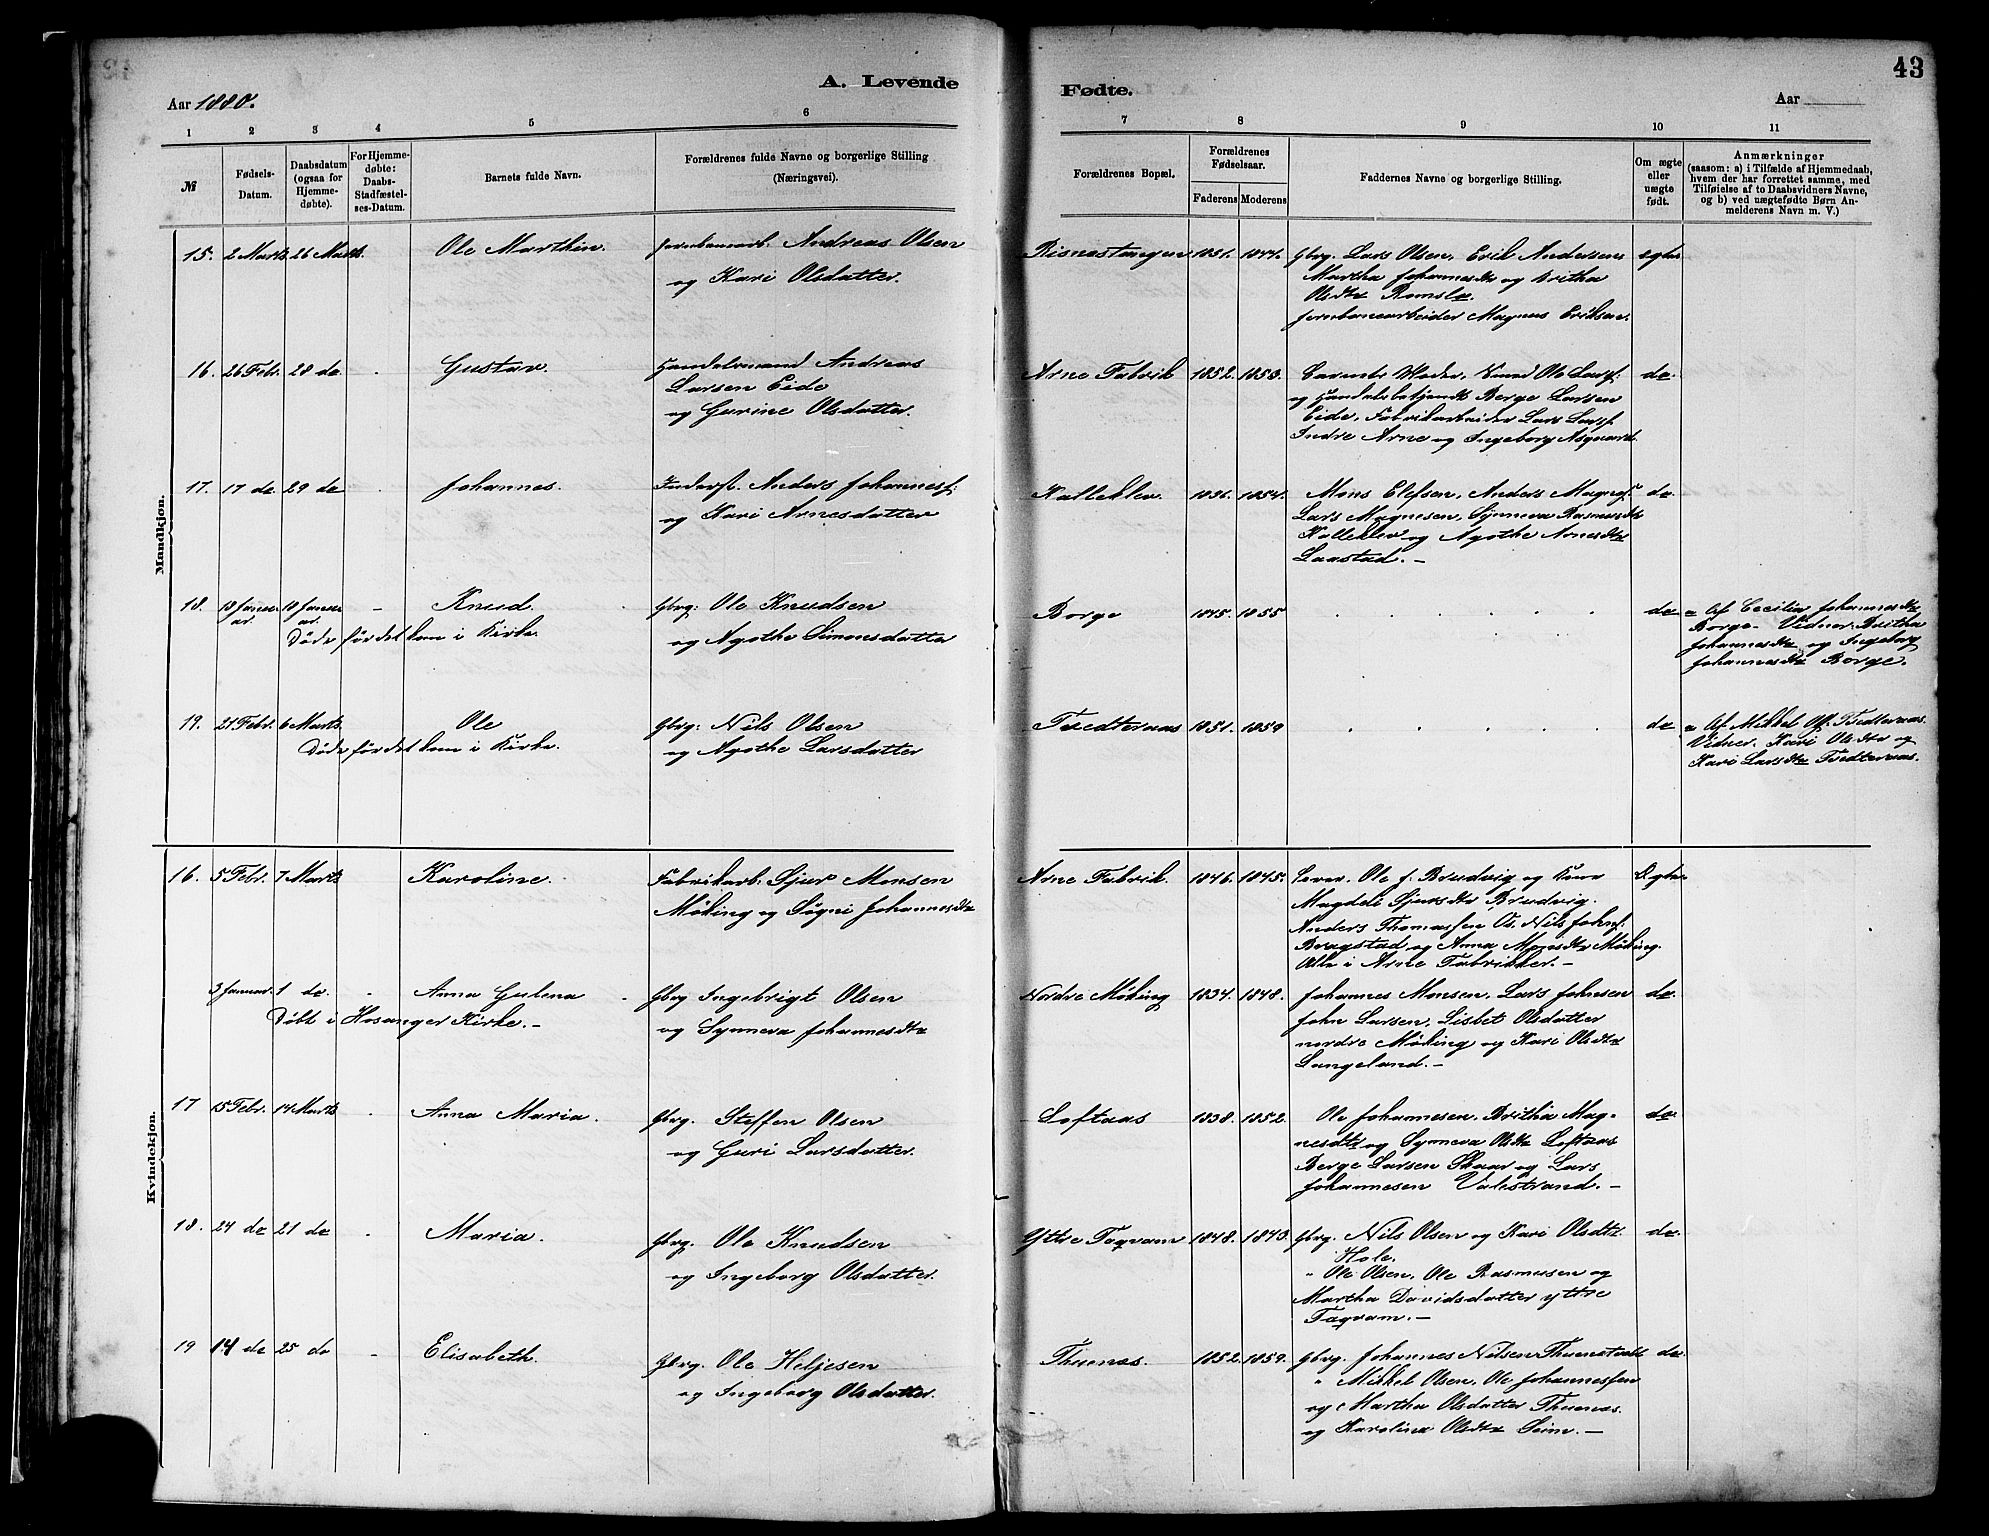 43
A. Levende
Fødte.
Aar 1880.
Aar
1 2 3 4 5 6
7 8 9 10 11
№
Fødsels-
Datum.
Daabsdatum
(ogsaa for
Hjemme-
døbte).
For Hjemme-
døbte:
Daabs-
Stadfæstel-
ses-Datum.
Barnets fulde Navn.
Forældrenes fulde Navne og borgerlige Stilling
(Næringsvei).
Forældrenes Bopæl.
Forældrenes
Fødselsaar.
Faderens Moderens
Faddernes Navne og borgerlige Stilling.
Om ægte
eller
uægte
født.
Anmærkninger
(saasom: a) i Tilfælde af Hjemmedaab,
hvem der har forrettet samme, med
Tilføielse af to Daabsvidners Navne,
og b) ved uægtefødte Børn An-
melderens Navn m. V.)
Mandkjøn.
15. 2 Marts 26 Marts. Ole Marthin Jernbanearb. Andreas Olsen
og Kari Olsdatter.
Risnestangen 1851. Gbrg. Lars Olsen, Erik Andersen
Martha Johannesdtr og Britha
Olsdtr Romslo.
Jernbanearbeider Magnus Eriksen.
ægte
16. 26 Febr. 28 do. Gustav. Handelsmand Andreas
Larsen Eide
og Gurine Olsdatter.
Arne Fabrik 1852. 1853.
og Handelsbetjendt Berge Larsen
Eide, Fabrikarbeider Lars Larsf.
Indre Arne og Ingeborg Asguard.
do.
17. 17 do 29 do Johannes. Inderst. Anders Johannesf.
og Kari Arnesdatter
Kalleklev. 1854. Mons Elefsen, Anders Magnsf.
Lars Magnesen, Synneva Rasmusdtr
Kalleklev og Agothe Arnesdtr
Laastad. —
do.
18. 18 Januar. 18 Januar. - Knud. Gbrg: Ole Knudsen
Døde før det kom i Kirke. og Agothe Simonsdatter
Borge 1845. 1855 do
a Af Cecilia Johannesdtr
Borge. Vidner: Britha
Johannesdtr og Ingeborg
Johannesdtr Borge.
19. 21 Febr. 6 Marts. Ole Gbrg: Nils Olsen
Døde før det kom i Kirke. og Agothe Larsdatter
Tvedternæs 1851. 1859 do
a Af Mikkel Olf. Tvedternæs.
Vidner. Kari Olsdtr og
Kari Larsdtr Tvedternæs.
Kvindekjøn.
16. 5 Febr. 7 Marts Karoline. Fabrikarb: Sjur Monsen
Møking og Signi Johannesdtr
Arne Fabrik. 1846. 1845. Ole J. Brudvig og Kone
Magdeli Sjursdtr Brudvig.
Anders Thomassen Os. Nils Johnsf.
Bragstad og Anna Monsdtr Møking.
Alle i Arne Fabrikker. —
Ægte.
3 Januar. 1 do. Anna Gulena Gbrg Ingebrigt Olsen
Døbt i Hosanger Kirke. — og Synneva Johannesdtr
Nordre Møking 1834. 1848. Johannes Monsen. Lars Johnsen
John Larsen, Lisbet Olsdatter
nordre Møking og Kari Olsdtr
Langeland. —
do.
17 15 Febr. 14 Marts Anna Maria. Gbrg. Steffen Olsen
og Guri Larsdatter.
Loftaas 1838. 1852. Ole Johannesen. Britha Mag-
nesdtr og Synneva Olsdtr Loftaas
Berge Larsen Skaar og Lars
Johannesen Valestrand. —
do
18. 24 do 21 do Maria. Gbrg. Ole Knudsen
og Ingeborg Olsdatter.
Yttre Taqvam 1848. 1843. Gbrg. Nils Olsen og Kari Olsdtr.
Hole.
" Ole Olsen. Ole Rasmusen og
Martha Davidsdatter yttre
Taqvam. —
do.
19 14 do 25 do Elisabeth. Gbrg. Ole Heljesen
og Ingeborg Olsdatter.
Thuenæs. 1852 1859. Gbrg. Johannes Nilsen Thuenstvedt
" Mikkel Olsen. Ole Johannessen
og Martha Olsdatter Thuenæs.
og Karolina Olsdtr Seim. —
do.